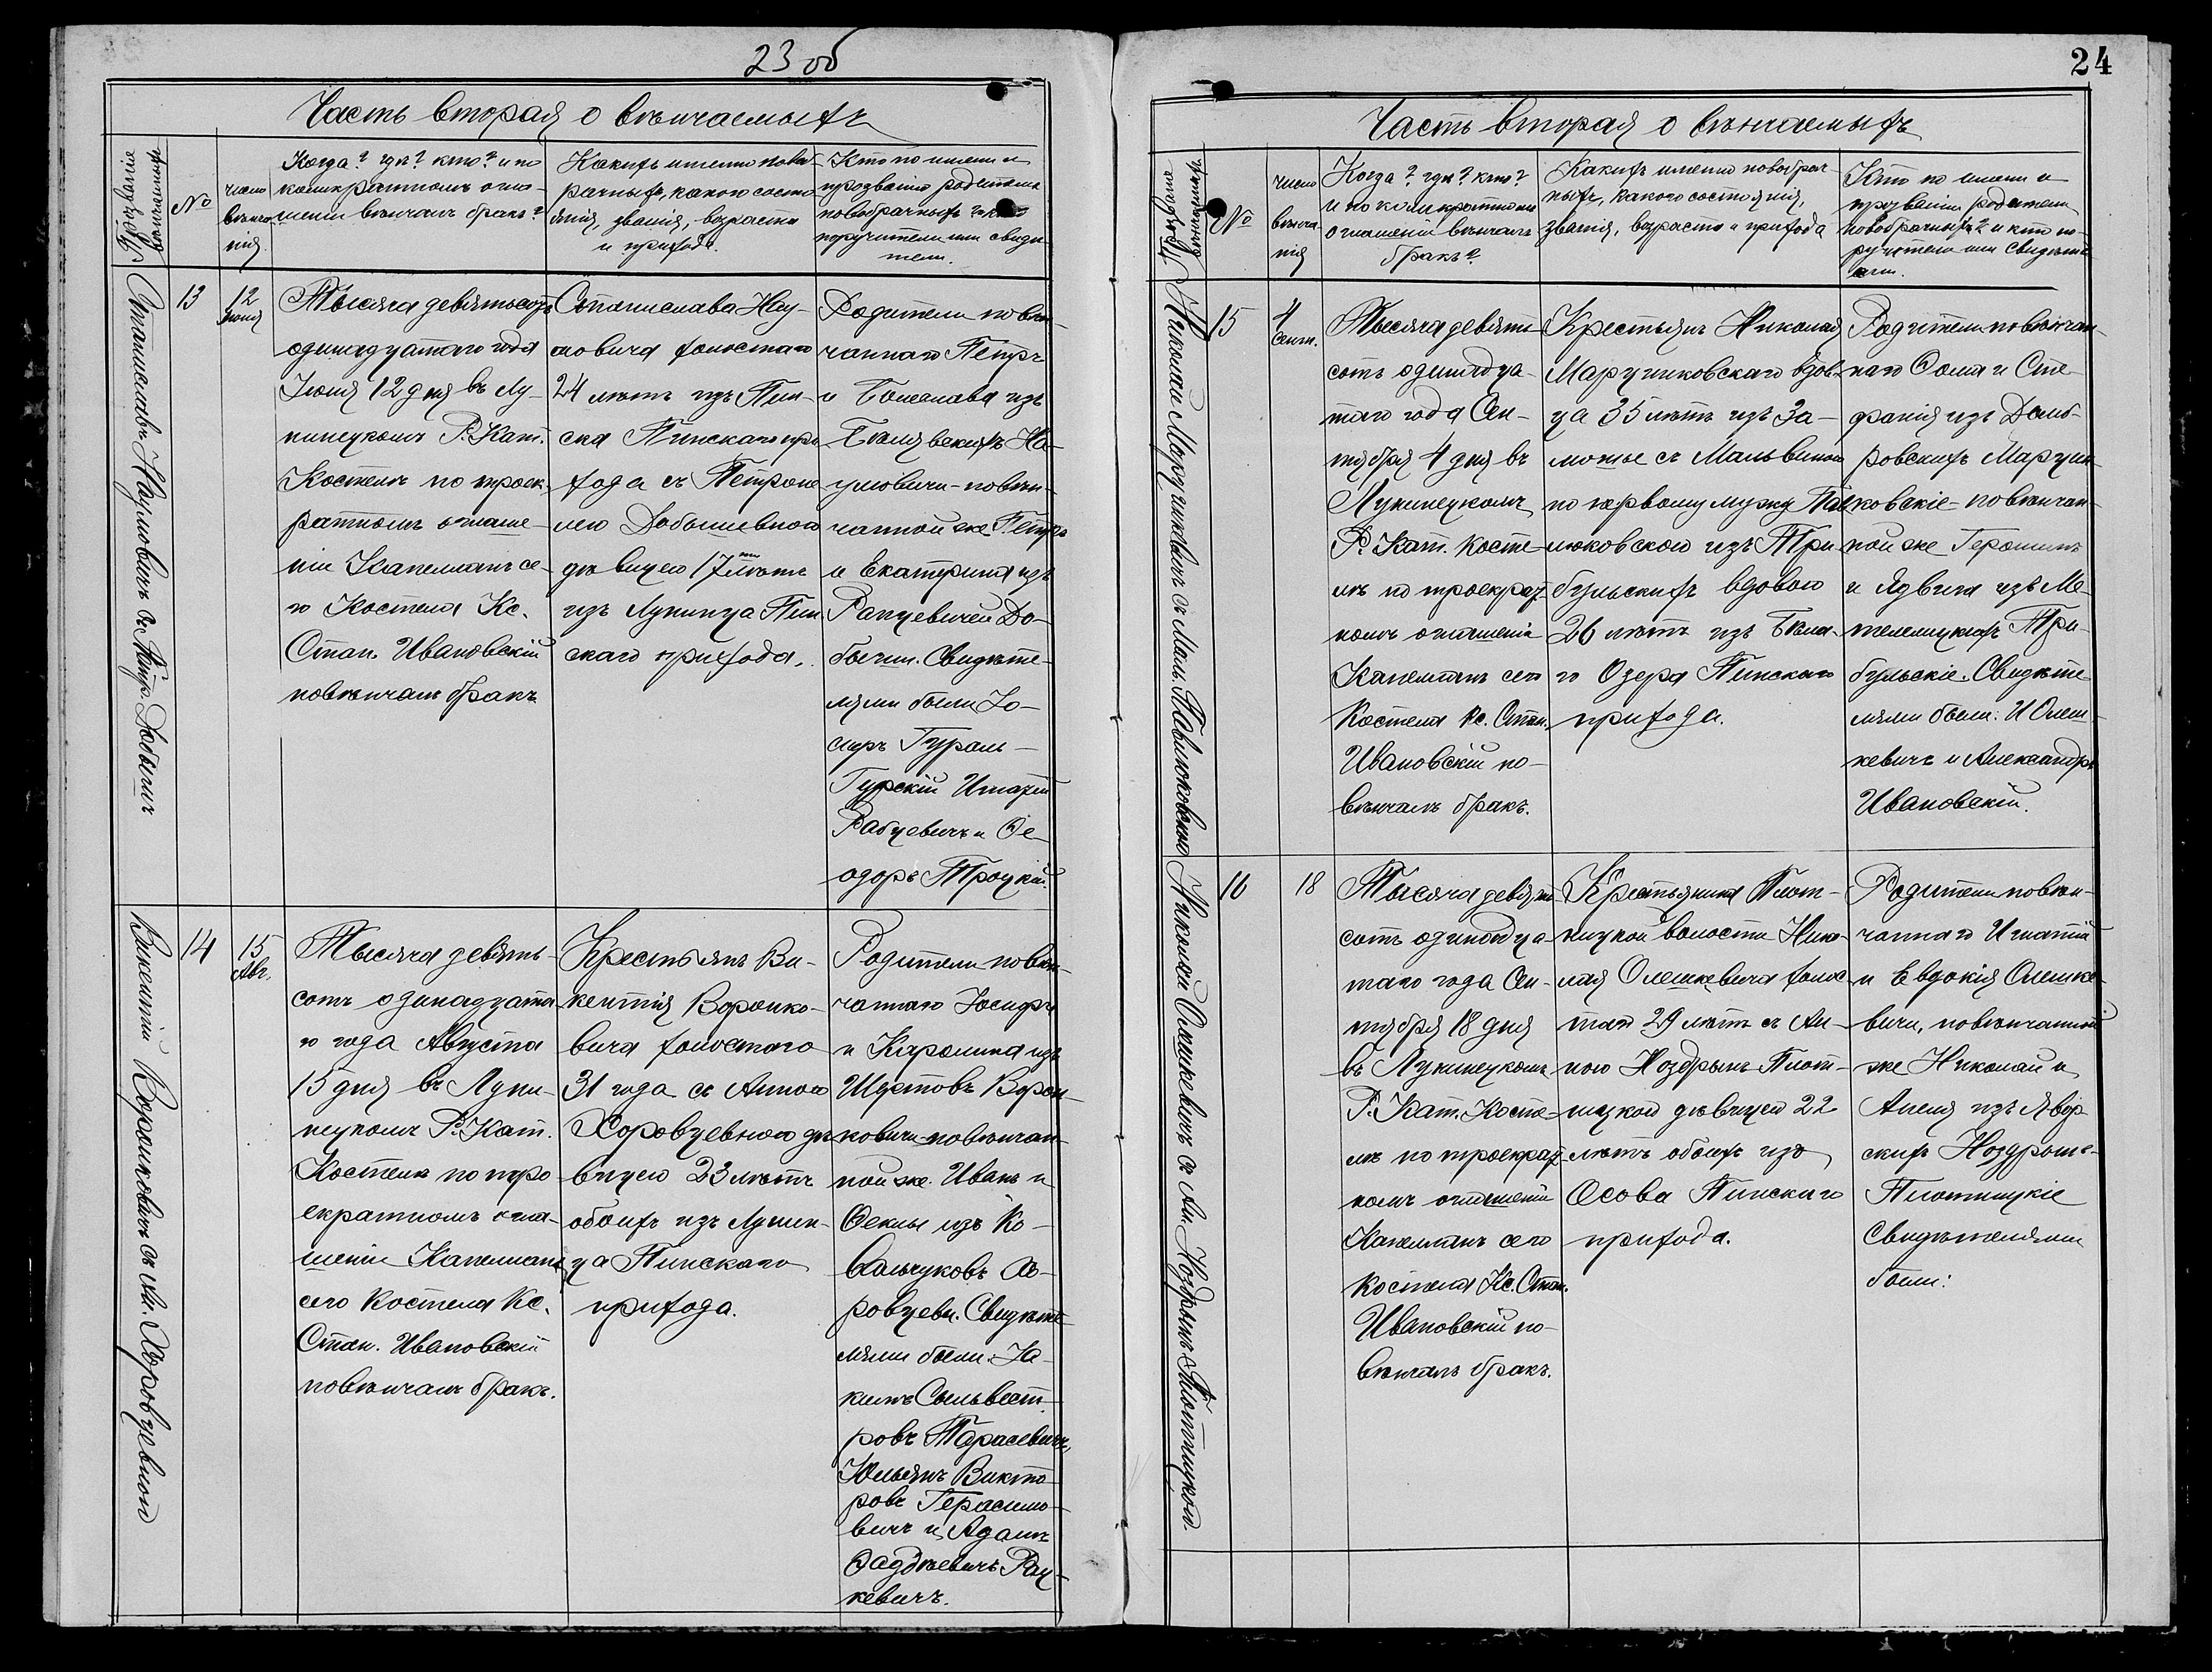 23 об
Часть вторая о вѣнчаемыхъ
№
число
вѣнча-
нія
Когда? гдѣ? кто? и по
коликратномъ огла-
шеніи вѣнчалъ бракъ?
Какихъ именно новоб-
рачныхъ, какого состо
янія, званія, возраста
и прихода.
Кто по имени и
прозванію родители
новобрачныхъ? и кто
поручители или свидѣ-
тели.
Станиславъ Наумовичъ съ Петр. Добышъ
13
12
Іюня
Тысяча девятьсотъ
одинадцатаго года
Іюня 12 дня въ Лу-
нинецкомъ Р. Кат.
Костелѣ по троек-
ратномъ оглаше-
ніи Капелланъ се-
го Костела Кс.
Стан. Ивановскій
повѣнчалъ бракъ
Станислава Нау-
мовича холостаго
24 лѣтъ изъ Пин-
ска Пинскаго при
хода съ Петроне
лею Добышевною
дѣвицею 17ти лѣтъ
изъ Лунинца Пин
скаго прихода.
Родители повѣн-
чаннаго Петръ
и Болеслава изъ
Бѣлявскихъ На-
умовичи - повѣн-
чанной же Петръ
и Екатерина изъ
Рапцевичей До-
быши. Свидѣте-
лями были Іо-
сифъ Гураль-
Гурскій Игнатій
Рабцевичъ и Ѳе-
одоръ Троцкій.
Викентій Воронковичъ съ Ан. Хоровцевной
14
15
Авг.
Тысяча девять-
сотъ одинадцата
го года Августа
15 дня въ Луни-
нецкомъ Р. Кат.
Костелѣ по тро
екратномъ огла-
шеніи Капелланъ
сего Костела Кс.
Стан. Ивановскій
повѣнчалъ бракъ.
Крестьянъ Ви-
кентія Воронко-
вича холостого
31 года съ Анною
Хоровцевною дѣ
вицею 23 лѣтъ
обоихъ изъ Лунин-
ца Пинскаго
прихода.
Родители повѣн-
чаннаго Іосифъ
и Каролина изъ
Шустовъ Ворон-
ковичи - повѣнчан-
ной же Иванъ и
Ѳеклы изъ Ко-
вальчуковъ Хо-
ровцевы. Свидѣте
лями были: Іа-
кимъ Сильвест-
ровъ Тарасевичъ,
Юльянъ Викто-
ровъ Герасимо-
вичъ и Адамъ
Фаддѣевичъ Рац-
кевичъ.
24
Часть вторая о вѣнчаемыхъ
№
число
вѣнча-
нія
Когда? гдѣ? кто?
и по коликратномъ
оглашеніи вѣнчалъ
бракъ?
Какихъ именно новобрач
ныхъ, какого состоянія,
званія, возраста и прихода
Кто по имени и
прозванію родители
новобрачныхъ? и кто по-
ручители или свидѣте
ли.
Николай Марцинкевичъ съ Мальв. Павлюковскою
15
4
Сент.
Тысяча девять
сотъ одинадца-
таго года Сен-
тября 4 дня въ
Лунинецкомъ
Р. Кат. Косте-
лѣ по троекрат-
номъ оглашеніи
Капелланъ сего
Костела Кс. Стан.
Ивановскій по-
вѣнчалъ бракъ.
Крестьянъ Николая
Марцинковскаго вдов-
ца 35 лѣтъ изъ За-
мошье съ Мальвиною
по первому мужу Пав
люковскою изъ Три
бульскихъ вдовою
26 лѣтъ изъ Бѣла-
го Озера Пинскаго
прихода.
Родители повѣнчан-
наго Ѳома и Сте-
фанія изъ Домб-
ровскихъ Марцин-
ковскіе - повѣнчан-
ной же Геронимъ
и Ядвига изъ Ме-
телецкихъ Три-
бульскіе. Свидѣте
лями были: И Олеш-
кевичъ и Александръ
Ивановскій.
Николай Олешкевичъ съ Ан. Ноздрынъ-Плотницкою.
16
18
Тысяча девять
сотъ одинадца-
таго года Сен-
тября 18 дня
въ Лунинецкомъ
Р. Кат. Косте-
лѣ по троекрат-
номъ оглашеніи
Капелланъ сего
Костела Кс. Стан.
Ивановскій по-
вѣнчалъ бракъ.
Крестьянина Плот-
ницкой волости Нико-
лая Олешкевича холос-
таго 29 лѣтъ съ Ан-
ною Ноздрынъ Плот-
ницкой дѣвицей 22
лѣтъ обоихъ изъ
Осова Пинскаго
прихода.
Родители повѣн-
чаннаго Игнатій
и Евдокія Олешке-
вичи, повѣнчанной
же Николай и
Анеля изъ Явор-
скихъ Ноздрынъ-
Плотницкіе
Свидѣтелями
были: